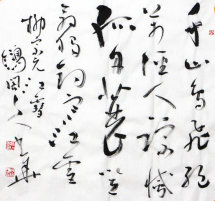 千山鳥飛絕
萬徑人踪滅
孤舟蓑笠
翁獨釣寒江雪
柳宗元江雪
人